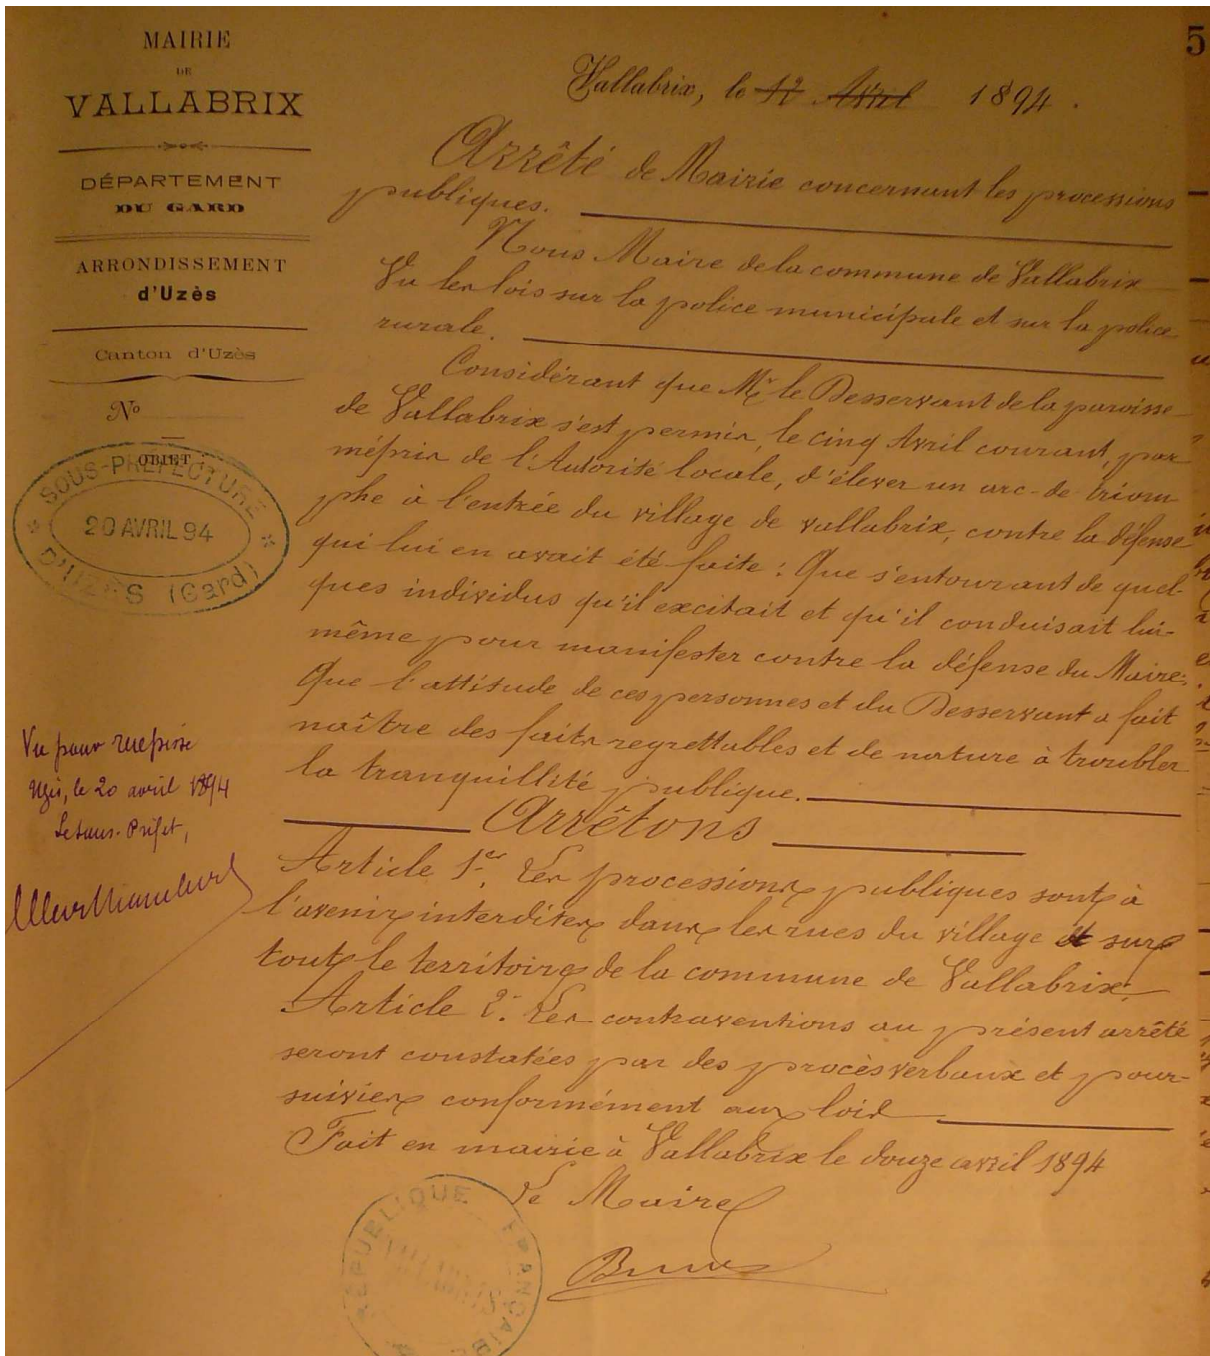 MAIRIE
DE
VALLABRIX
DÉPARTEMENT
DU GARD
ARRONDISSEMENT
d'Uzès
Canton d'Uzès
No
OBJET
SOUS-PRÉFECTURE
20 AVRIL 94
D'UZÈS (Gard)
Vu pour récépissé
Uzès, le 20 avril 1894
Le Sous-Préfet,
5
Vallabrix, le 12 Avril 1894.
Arrêté de Mairie concernant les processions
publiques.
Nous Maire de la commune de Vallabrix
Vu les lois sur la police municipale et sur la police
rurale.
Considérant que Mr le Desservant de la paroisse
de Vallabrix s'est permis, le cinq Avril courant, par
mépris de l'Autorité locale, d'élever un arc-de-triom
phe à l'entrée du village de vallabrix, contre la défense
qui lui en avait été faite : Que s'entourant de quel-
ques individus qu'il excitait et qu'il conduisait lui-
même pour manifester contre la défense du Maire;
Que l'attitude de ces personnes et du Desservant a fait
naître des faits regrettables et de nature à troubler
la tranquillité publique.
Arrêtons
Article 1er. Les processions publiques sont à
l'avenir interdites dans les rues du village et sur
tout le territoire de la commune de Vallabrix.
Article 2. Les contraventions au présent arrêté
seront constatées par des procès verbaux et pour-
suivies conformément aux lois
Fait en mairie à Vallabrix le douze avril 1894
Le Maire
RÉPUBLIQUE FRANÇAISE